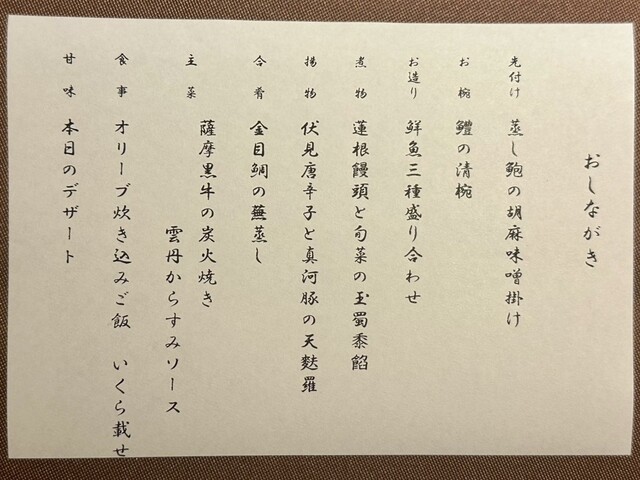 おしながき
先付け 蒸し鮑の胡麻味噌掛け
お椀 鱧の清椀
お造り 鮮魚三種盛り合わせ
煮物 蓮根饅頭と旬菜の玉蜀黍餡
揚物 伏見唐辛子と真河豚の天麩羅
合肴 金目鯛の蕪蒸し
主菜 薩摩黒牛の炭火焼き
雲丹からすみソース
食事 オリーブ炊き込みご飯 いくら載せ
甘味 本日のデザート